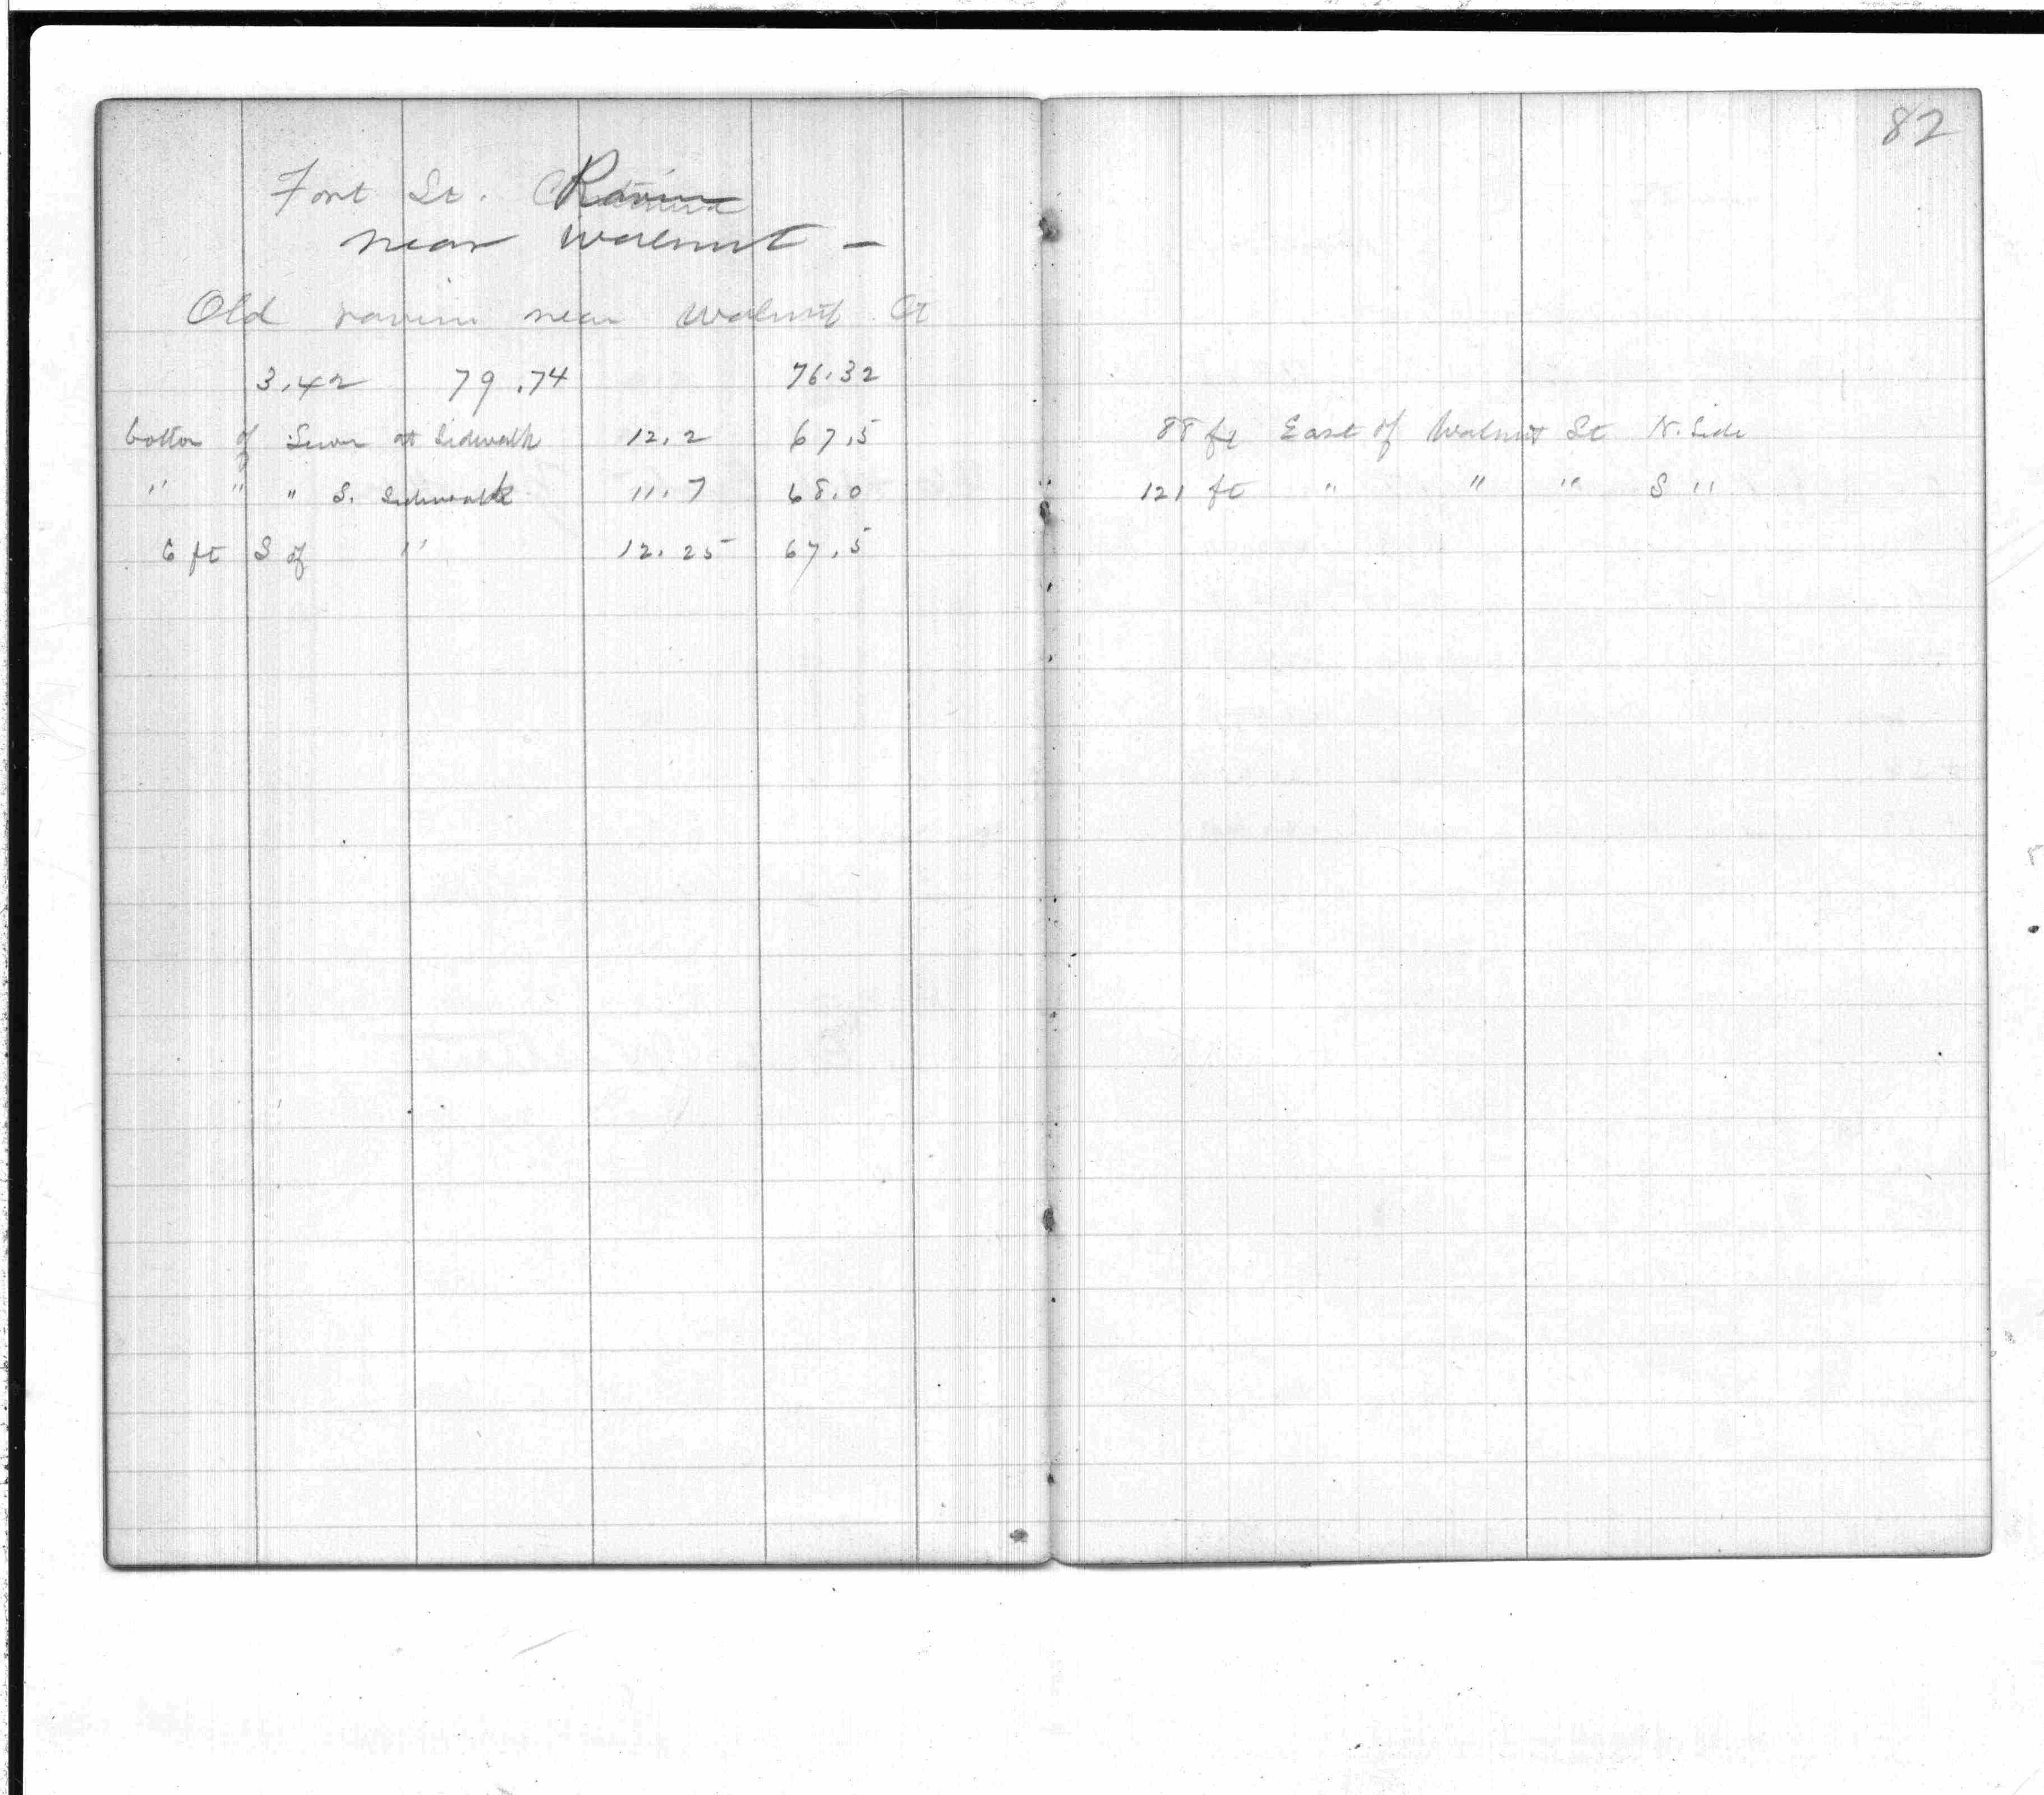 82
Fort St. Ravine
near Walnut —
Old ravine near Walnut St
3.42 79.74 76.32
bottom of Sewer at Sidewalk 12.2 67.5 88 ft East of Walnut St N. Side
" " " S. Sidewalk 11.7 68.0 121 ft " " " S "
6 ft S of " 12.25 67.5